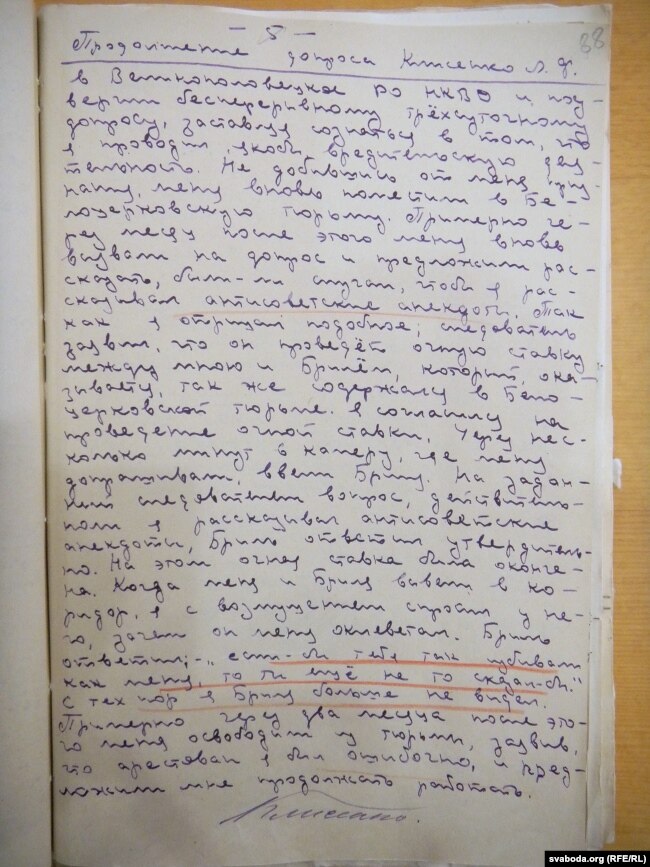 – 5 –
88
Продолжение допроса Клисенко Л. Ф.
в Великополовецкое РО НКВД и под-
вергли беспрерывному трёхсуточному
допросу, заставляя сознаться в том, что
я проводил якобы вредительскую дея-
тельность. Не добившись от меня приз-
наний, меня вновь поместили в Бе-
лоцерковскую тюрьму. Примерно че-
рез месяц после этого меня вновь
вызвали на допрос и предложили рас-
сказать, были-ли случаи, чтобы я рас-
сказывал антисоветские анекдоты. Так
как я отрицал подобное, следователь
заявил, что он проведёт очную ставку
между мною и Брилём, который, ока-
зывается, так же содержался в Бело-
церковской тюрьме. Я согласился на
проведение очной ставки. Через нес-
колько минут в камеру, где меня
допрашивали, ввели Бриля. На задан-
ный следователем вопрос, действитель-
но ли я рассказывал антисоветские
анекдоты, Бриль ответил утвердитель-
но. На этом очная ставка была оконче-
на. Когда меня и Бриля вывели в ко-
ридор, я с возмущением спросил у не-
го, зачем он меня оклеветал. Бриль
ответил: – „если-бы тебя так избивали
как меня, то ты ещё не то сказал-бы."
С тех пор я Бриля больше не видел.
Примерно через два месяца после это-
го меня освободили из тюрьмы, заявив,
что арестован я был ошибочно, и пред-
ложили мне продолжать работать.
svaboda.org (RFE/RL)